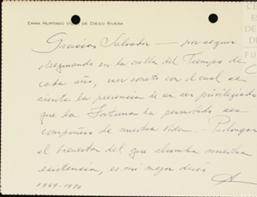 EMMA HURTADO VDA. DE DIEGO RIVERA
Gracias Salvador — por seguir
designando en la calle del Tiempo de
cada año, un soneto con el cual se
siente la presencia de un ser privilegiado
que la Fortuna ha permitido sea
compañero de nuestra vida. — Prolongar
el bienestar del que alumbra nuestra
existencia, es mi mejor deseo
1969-1970